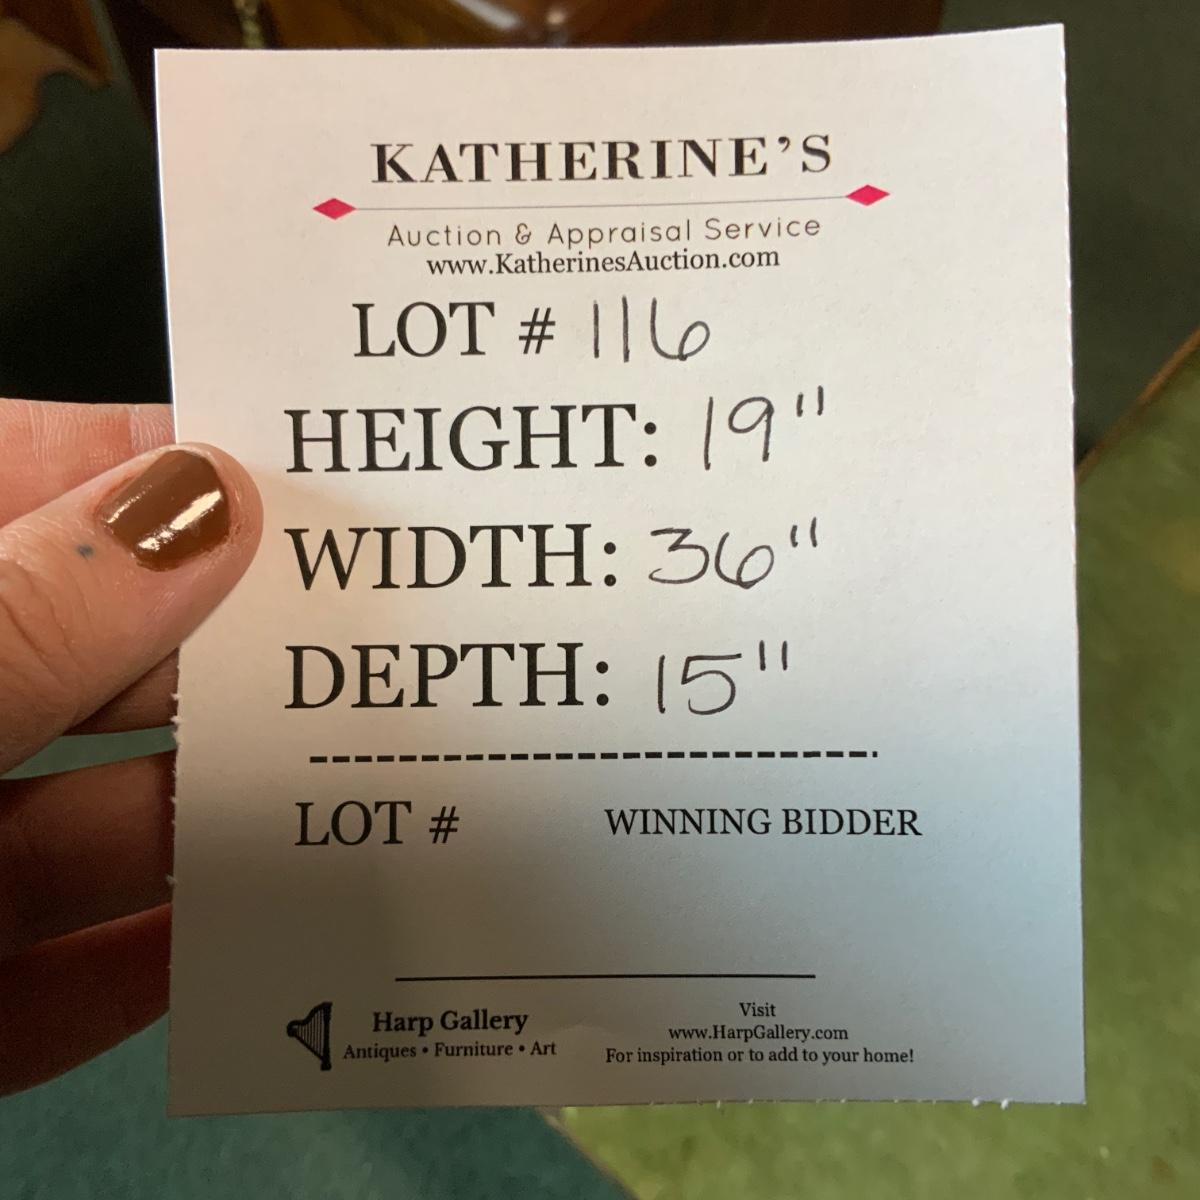 KATHERINE'S
Auction & Appraisal Service
www.KatherinesAuction.com
LOT # 116
HEIGHT: 19"
WIDTH: 36"
DEPTH: 15"
LOT # WINNING BIDDER
Harp Gallery
Antiques • Furniture • Art
Visit
www.HarpGallery.com
For inspiration or to add to your home!